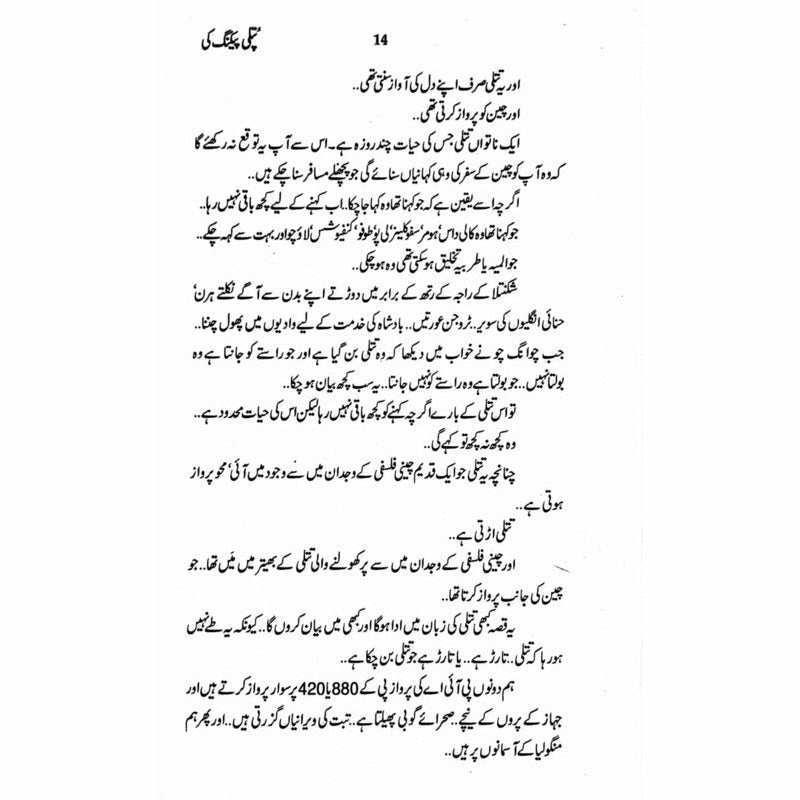 پُتلی پیکنگ کی
14
اور یہ تتلی صرف اپنے دل کی آواز سنتی تھی..
اور چین کو پرواز کرتی تھی..
ایک ناتواں تتلی جس کی حیات چند روزہ ہے۔ اس سے آپ یہ توقع نہ رکھئے گا
کہ وہ آپ کو چین کے سفر کی وہی کہانیاں سنائے گی جو پچھلے مسافر سنا چکے ہیں..
اگرچہ اسے یقین ہے کہ جو کہنا تھا وہ کہا جا چکا.. اب کہنے کے لیے کچھ باقی نہیں رہا..
جو کہنا تھا وہ کالی داس' ہومر' سفوکلیز' لی پو' طوفو' کنفیوشس' لاؤ چو اور بہت سے کہہ چکے..
جو المیہ یا طربیہ تخلیق ہو سکتی تھی وہ ہو چکی..
شکنتلا کے راجہ کے رتھ کے برابر میں دوڑتے اپنے بدن سے آگے نکلتے ہرن'
حنائی انگلیوں کی سویر.. ٹروجن عورتیں.. بادشاہ کی خدمت کے لیے وادیوں میں پھول چننا..
جب چوانگ چو نے خواب میں دیکھا کہ وہ تتلی بن گیا ہے اور جو راستے کو جانتا ہے وہ
بولتا نہیں.. جو بولتا ہے وہ راستے کو نہیں جانتا.. یہ سب کچھ بیان ہو چکا..
تو اس تتلی کے بارے اگرچہ کہنے کو کچھ باقی نہیں رہا لیکن اس کی حیات محدود ہے..
وہ کچھ نہ کچھ تو کہے گی..
چنانچہ یہ تتلی جو ایک قدیم چینی فلسفی کے وجدان میں سے وجود میں آئی' محو پرواز
ہوتی ہے..
تتلی اڑتی ہے..
اور چینی فلسفی کے وجدان میں سے پر کھولنے والی تتلی کے بھیتر میں مَیں تھا.. جو
چین کی جانب پرواز کرتا تھا..
یہ قصہ کبھی تتلی کی زبان میں ادا ہو گا اور کبھی میں بیان کروں گا.. کیونکہ یہ طے نہیں
ہو رہا کہ تتلی.. تارڑ ہے.. یا تارڑ ہے جو تتلی بن چکا ہے..
ہم دونوں پی آئی اے کی پرواز پی کے 880 یا 420 پر سوار پرواز کرتے ہیں اور
جہاز کے پروں کے نیچے.. صحرائے گوبی پھیلتا ہے.. تبت کی ویرانیاں گزرتی ہیں.. اور پھر ہم
منگولیا کے آسمانوں پر ہیں..